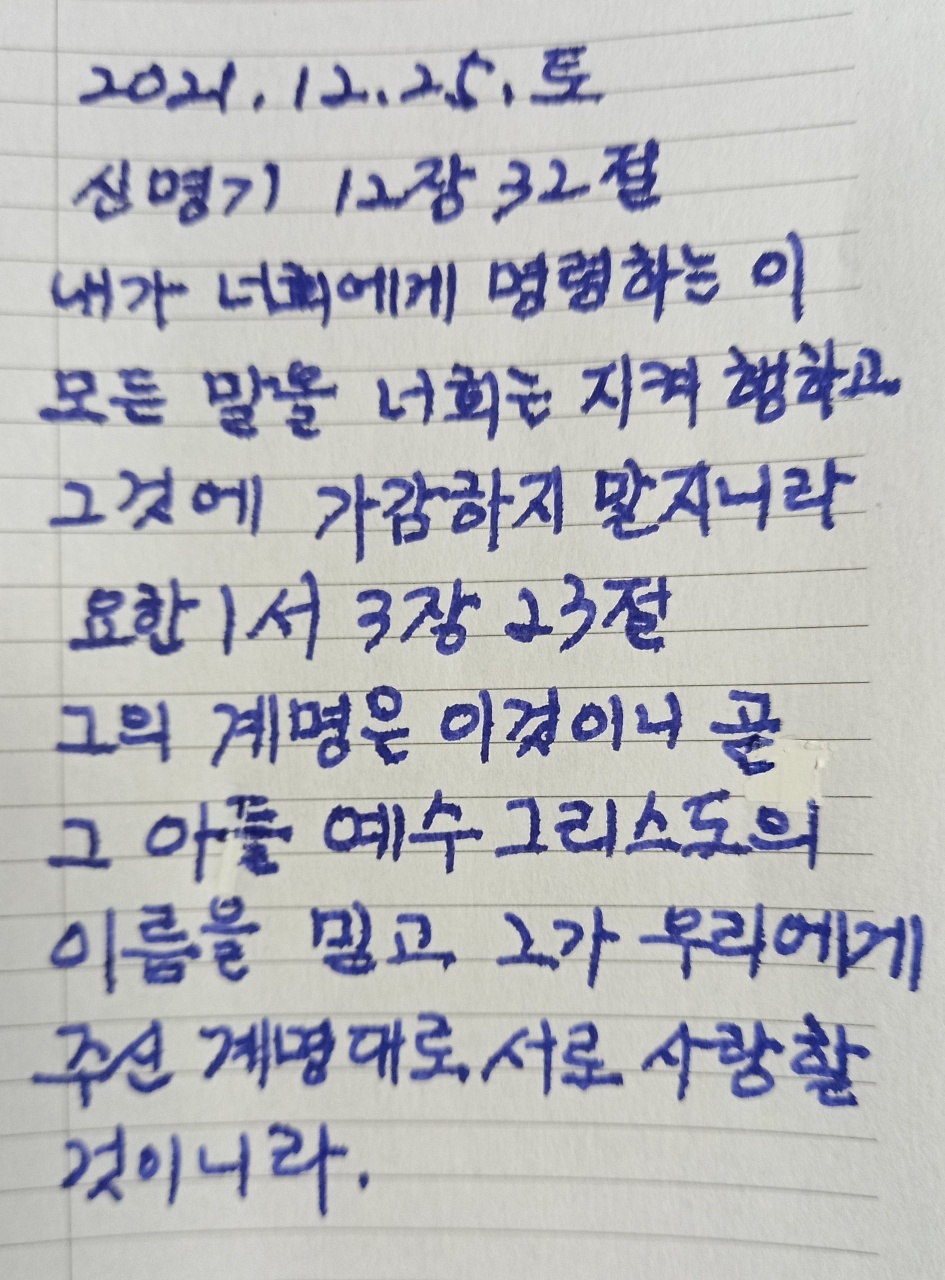 2021.12.25.토
신명기 12장 32절
내가 너희에게 명령하는 이
모든 말을 너희는 지켜 행하고
그것에 가감하지 말지니라
요한1서 3장 23절
그의 계명은 이것이니 곧
그 아들 예수 그리스도의
이름을 믿고 그가 우리에게
주신 계명대로 서로 사랑할
것이니라.